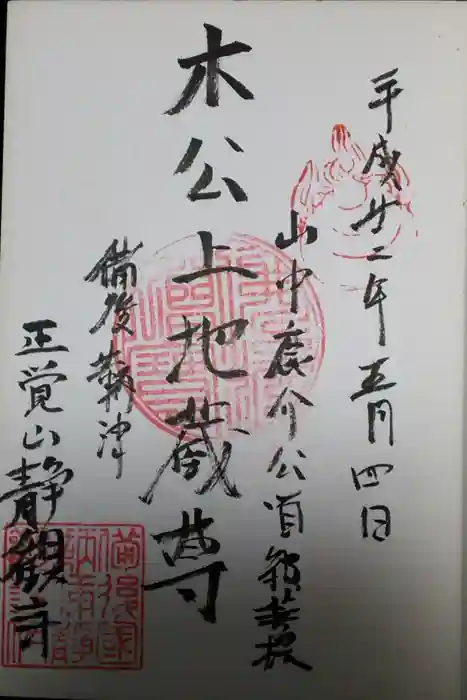 平成廿二年五月四日
山中鹿介公首級菩提
木公上地蔵尊
備後鞆津
正覚山静観寺